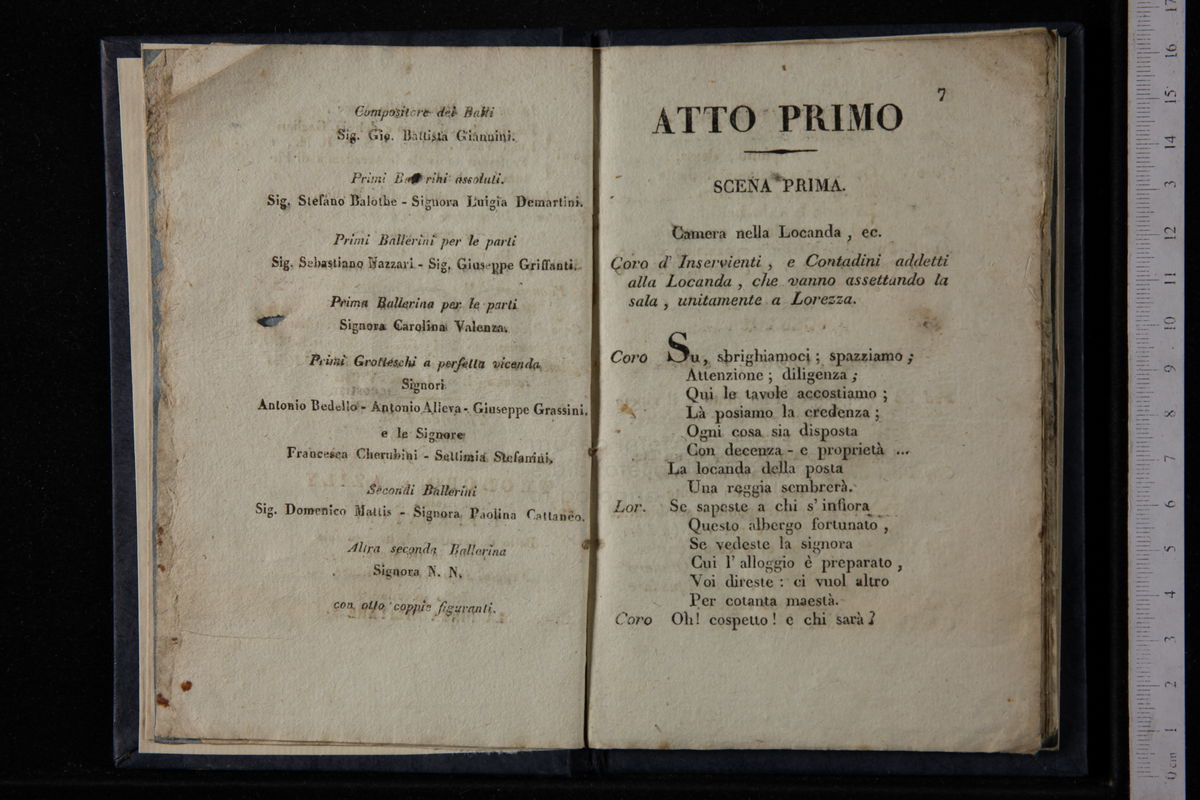 Compositore dei Balli
Sig. Gio. Battista Giannini.
Primi Ba rini assoluti.
Sig. Stefano Balothe - Signora Luigia Demartini.
Primi Ballerini per le parti
Sig. Sebastiano Nazzari - Sig. Giuseppe Griffanti.
Prima Ballerina per le parti
Signora Carolina Valenza.
Primi Grotteschi a perfetta vicenda
Signori
Antonio Bedello - Antonio Alieva - Giuseppe Grassini.
e le Signore
Francesca Cherubini - Settimia Stefanini.
Secondi Ballerini
Sig. Domenico Mattis - Signora Paolina Cattaneo.
Altra seconda Ballerina
Signora N. N.
con otto coppie figuranti.
7
ATTO PRIMO
SCENA PRIMA.
Camera nella Locanda, ec.
Coro d' Inservienti, e Contadini addetti
alla Locanda, che vanno assettando la
sala, unitamente a Lorezza.
Coro Su, sbrighiamoci; spazziamo;
Attenzione; diligenza;
Qui le tavole accostiamo;
Là posiamo la credenza;
Ogni cosa sia disposta
Con decenza - e proprietà ...
La locanda della posta
Una reggia sembrerà.
Lor. Se sapeste a chi s' infiora
Questo albergo fortunato,
Se vedeste la signora
Cui l' alloggio è preparato,
Voi direste: ci vuol altro
Per cotanta maestà.
Coro Oh! cospetto! e chi sarà?
0 cm 1 2 3 4 5 6 7 8 9 10 11 12 13 14 15 16 17